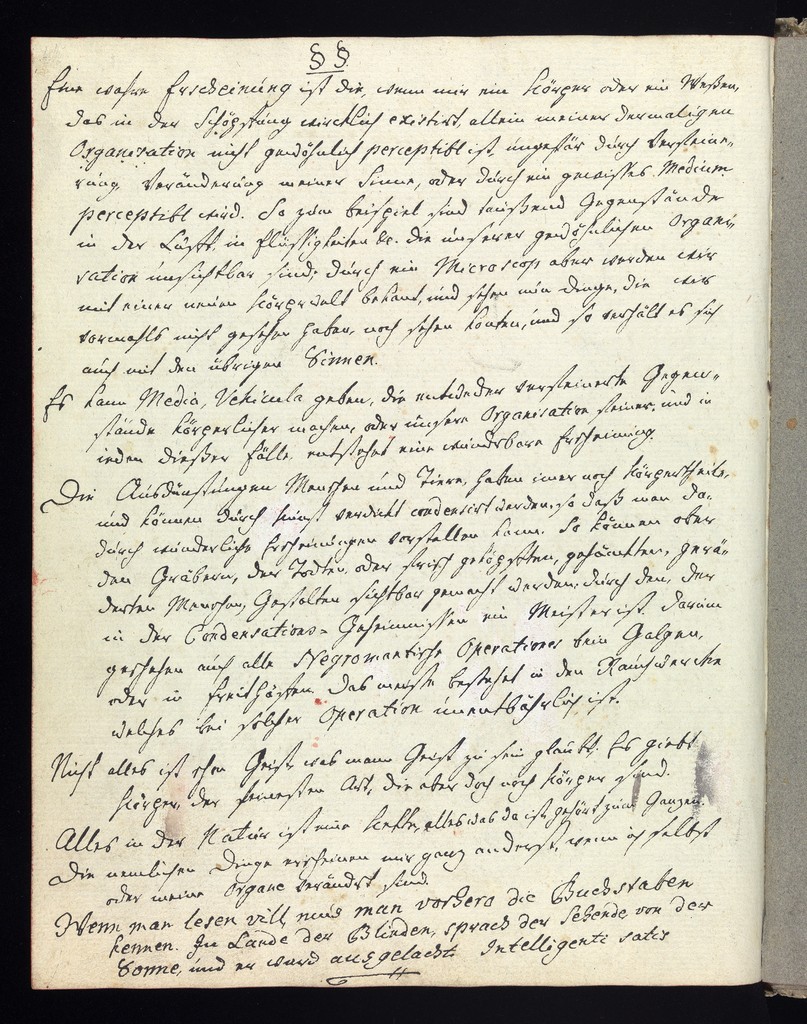 § §.
Eine wahre Erscheinung ist die, wenn mir ein Körper oder ein Weßen,
das in der Schöpfung wircklich existirt, allein meiner dermaligen
Organisation nicht gewöhnlich perceptibl ist, ungefär durch Verfeine-
rung Veränderung meiner Sinne, oder durch ein gewisses Medium
perceptibl wird. So zum beispiel sind tausend Gegenstände
in der Lufft, in Flüssigkeiten &c. die unserer gewöhnlichen Organi-
sation unsichtbar sind; durch ein Microscop aber werden wir
mit einer neuen Körperwelt bekant, und sehen nun Dinge, die wir
vormahls nicht gesehen haben, noch sehen konten, und so verhält es sich
auch mit den übrigen Sinnen.
Es kann Media, Vehicula geben, die entweder verfeinerte Gegen-
stände körperlicher machen, oder unsere Organisation feiner, und in
jeden dießer Fälle entstehet eine wunderbare Erscheinung.
Die Ausdünstungen Menschen und Tiere, haben imer noch Körpertheile,
und können durch Kunst verdickt condensirt werden, so daß man da-
durch wunderliche Erscheinungen vorstellen kann. So können ober
den Gräbern, der Todten, oder frisch geköpften, gehänckten, gerä-
derten Menschen, Gestalten sichtbar gemacht werden; durch den, der
in der Condensations-Geheimnissen ein Meister ist. Darum
geschehen auch alle Negromantische Operationes beim Galgen,
oder in Freithöfen. Das meiste bestehet in den Rauchwercke
welches bei solcher Operation unentbährlich ist.
Nicht alles ist eben Geist, was mann Geist zu sein glaubt. Es giebt
Körper, der feinesten Art, die aber doch noch Körper sind.
Alles in der Natur ist eine Kette, alles was da ist, gehört zum Ganzen.
Die nemlichen Dinge erscheinen mir ganz anderst, wenn ich selbst
oder meine Organe verändert sind.
Wenn man lesen will, muß man vorhero die Buchstaben
kennen. Im Lande der Blinden, sprach der Sehende von der
Sonne, und er ward ausgelacht. Intelligenti satis